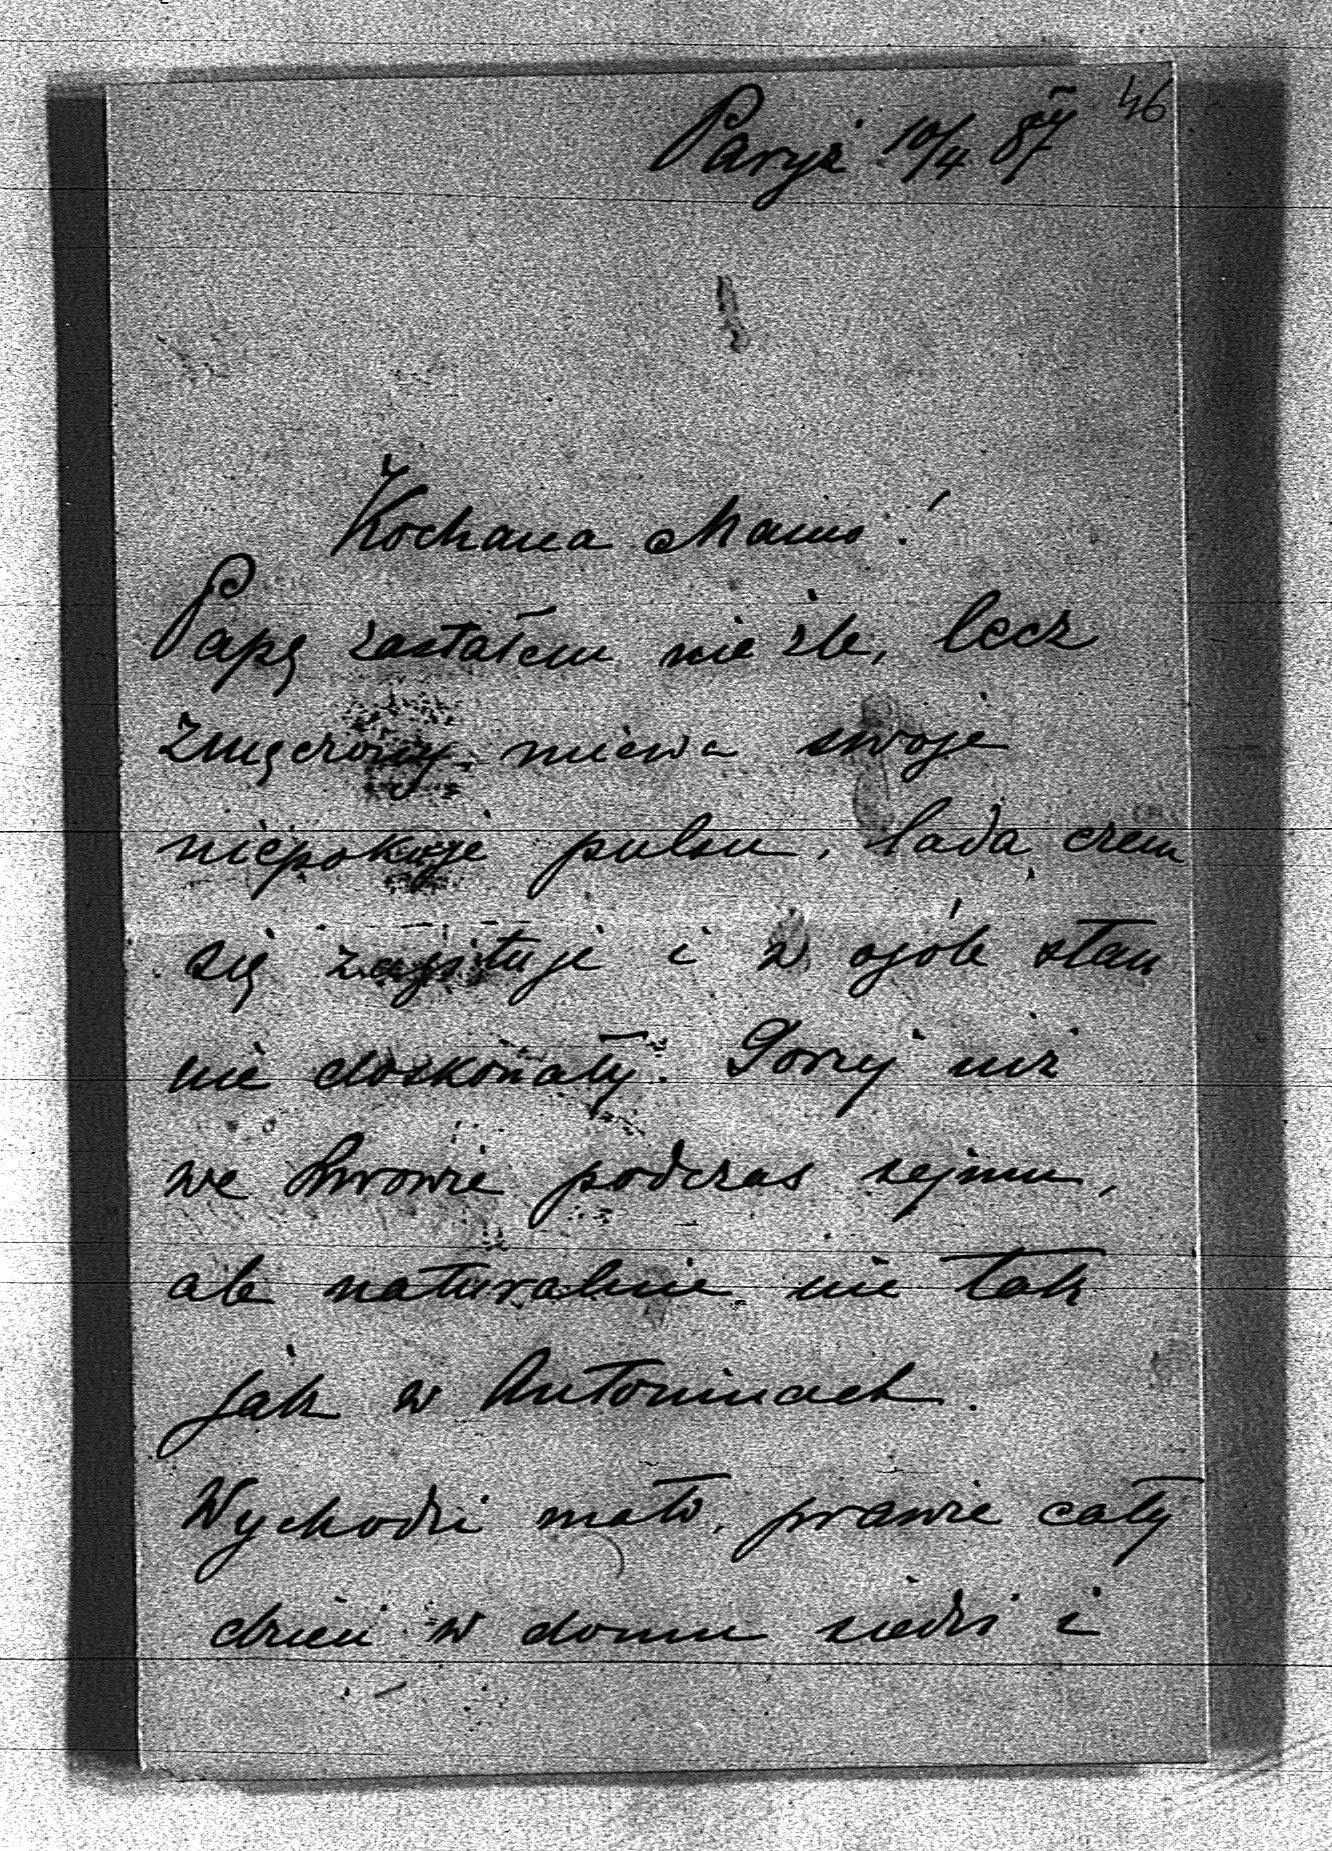 46
Paryż 10/4 87
Kochana Mamo!
Papę zastałem nie źle, lecz
zmęczony, miewa swoje
niepokoje pulsu, lada czem
się zirytuje i w ogóle stan
nie doskonały. Gorzej niż
we Lwowie podczas sejmu,
ale naturalnie nie tak
jak w Antoninach.
Wychodzi mało, prawie cały
dzień w domu siedzi i